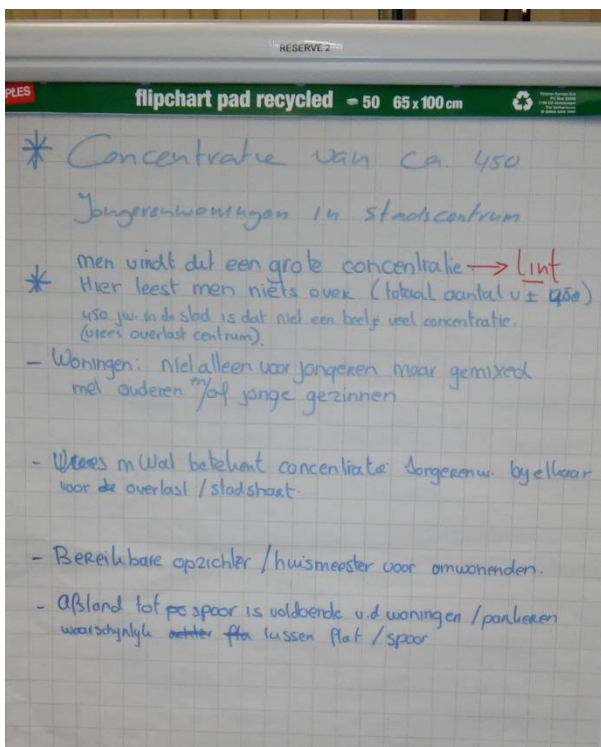 RESERVE 2
PLES
flipchart pad recycled = 50 65 x 100 cm
* Concentratie van ca. 450
Jongerenwoningen in stadscentrum
men vindt dit een grote concentratie → lint
* Hier leest men niets over (totaal aantal v ± 450)
450 jw. in de stad is dat niet een beetje veel concentratie.
(vrees overlast centrum).
- Woningen: niet alleen voor jongeren maar gemixed
met ouderen en/of jonge gezinnen
- Vrees Wal betekent concentratie Jongerenw. by elkaar
voor de overlast / stadshart.
- Bereikbare opzichter / huismeester voor omwonenden.
- Afstand tot spoor is voldoende v.d woningen / parkeren
waarschynlyk achter tussen flat / spoor